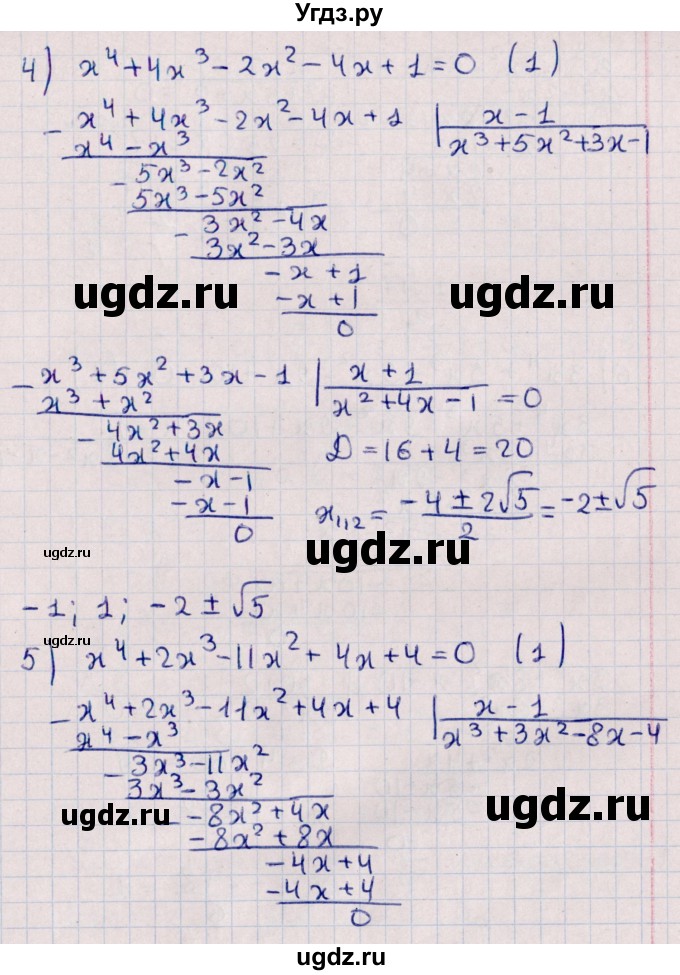 Угдз.ру
4) x⁴ + 4x³ - 2x² - 4x + 1 = 0 (1)
- x⁴ + 4x³ - 2x² - 4x + 1 | x - 1
x⁴ - x³ x³ + 5x² + 3x - 1
- 5x³ - 2x²
5x³ - 5x²
- 3x² - 4x
3x² - 3x
- x + 1
ugdz.ru ugdz.ru
- x + 1
0
- x³ + 5x² + 3x - 1 | x + 1
x³ + x² x² + 4x - 1 = 0
- 4x² + 3x
4x² + 4x D = 16 + 4 = 20
- x - 1
- x - 1 x₁,₂ = (-4 ± 2√5)/2 = -2 ± √5
0
ugdz.ru ugdz.ru
-1; 1; -2 ± √5
5) x⁴ + 2x³ - 11x² + 4x + 4 = 0 (1)
- x⁴ + 2x³ - 11x² + 4x + 4 | x - 1
x⁴ - x³ x³ + 3x² - 8x - 4
- 3x³ - 11x²
3x³ - 3x²
- 8x² + 4x
ugdz.ru ugdz.ru
- 8x² + 8x
- 4x + 4
- 4x + 4
0
ugdz.ru